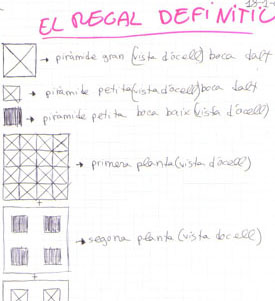 EL REGAL DEFINITIC
→ piràmide gran (vista d'ocell) boca dalt
→ piràmide petita (vista d'ocell) boca dalt
→ piràmide petita boca baix (vista d'ocell)
→ primera planta (vista d'ocell)
+
→ segona planta (vista d'ocell)
+